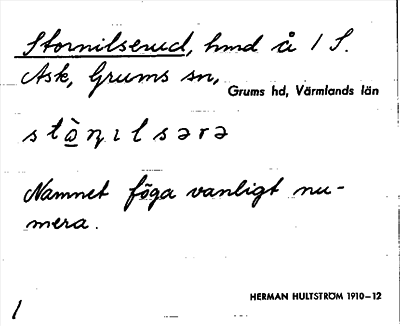 Stornilserud, hmd å 1 S.
Ask, Grums sn,
Grums hd, Värmlands län
stὰ̠ɳɪlsərə
Namnet föga vanligt nu-
mera.
HERMAN HULTSTRÖM 1910–12
1